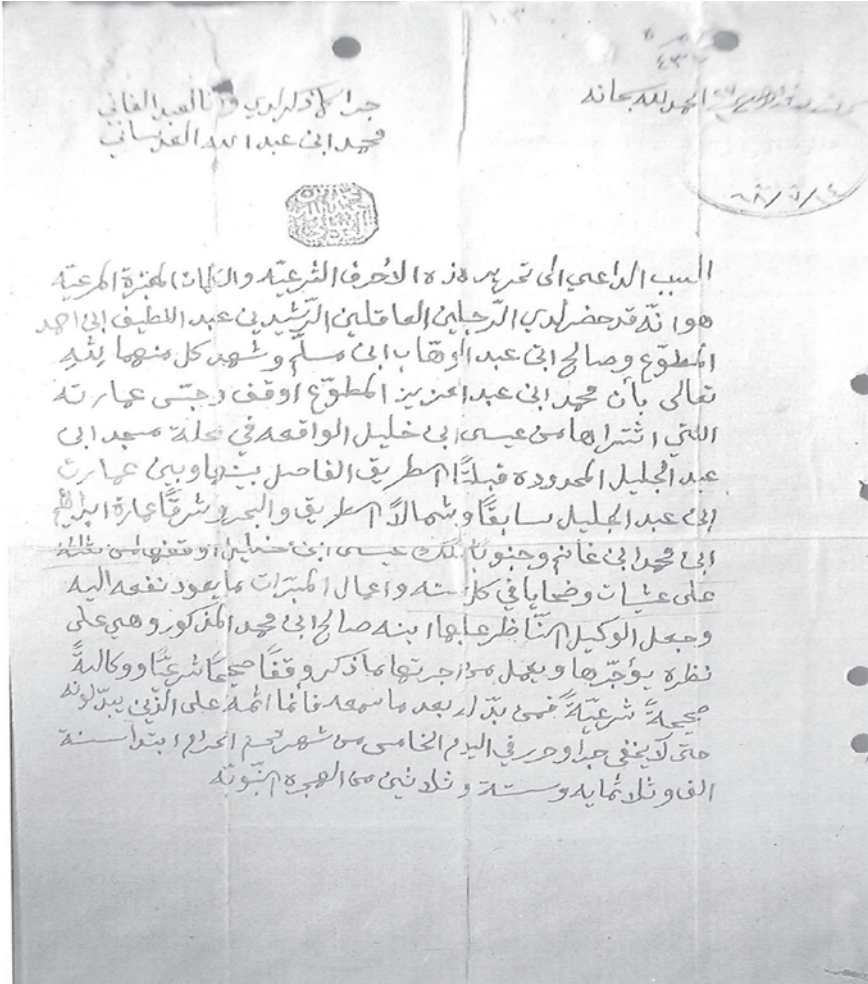 الحمد لله سبحانه
جرا كما ذكر لدي وانا العبد الفاني
محمد ابن عبد الله العدساني
السبب الداعي الى تحرير هذه الاحرف الشرعيّه والكلمات المرعيّه
هو انّه قد حضر لدي الرّجلين العاقلين الرّشيدين عبد اللطيف ابن احمد
المطوّع وصالح ابن عبد الوهّاب ابن مسلّم وشهد كل منهما لله
تعالى بأن محمد ابن عبد العزيز المطوّع اوقف وحبّس عمارته
اللتي اشتراها من عيسى ابن خليل الواقعه في محلة مسجد ابن
عبد الجليل المحدوده قبلةً الطريق الفاصل بينها وبين عمارت
ابن عبد الجليل سابقًا وشمالاً الطريق والبحر وشرقًا عمارة ابراهيم
ابن محمد ابن غانم وجنوبًا ملك عيسى ابن خليل اوقفها من ثلثه
على عشيات وضحايا في كل سنه واعمال المبرّات مما يعود نفعه اليه
وجعل الوكيل النّاظر عليها ابنه صالح ابن محمد المذكور وهي على
نظره يؤجّرها ويعمل من اجرتها ما ذكر وقفًا صحيحًا شرعيًّا ووكالةً
صحيحةً شرعيّةً فمن بدّله بعد ما سمعه فانما اثمه على الّذين يبدّلونه
حتى لا يخفى جرا وحرر في اليوم الخامس من شهر محرم الحرام ابتدا سنة
الف وثلاثمايه وستة وثلاثين من الهجره النّبويّه